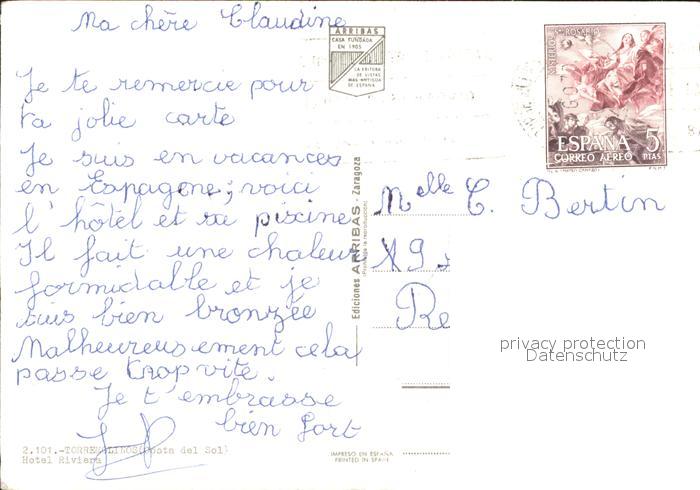 Ma chère Claudine
Je te remercie pour
ta jolie carte
Je suis en vacances
en Espagne; voici
l'hôtel et sa piscine
Il fait une chaleur
formidable et je
suis bien bronzée
Malheureusement cela
passe trop vite.
Je t'embrasse
bien fort
2.101.-TORREMOLINOS (Costa del Sol)
Hotel Riviera
ARRIBAS
CASA FUNDADA
EN 1905
LA EDITORA
DE VISTAS
MAS ANTIGUA
DE ESPAÑA
Ediciones ARRIBAS - Zaragoza
(Prohibida la reproducción)
Melle C. Bertin
19
Re
MISTERIOS Sto ROSARIO
ESPAÑA 5
CORREO AEREO PTAS
privacy protection
Datenschutz
IMPRESO EN ESPAÑA
PRINTED IN SPAIN